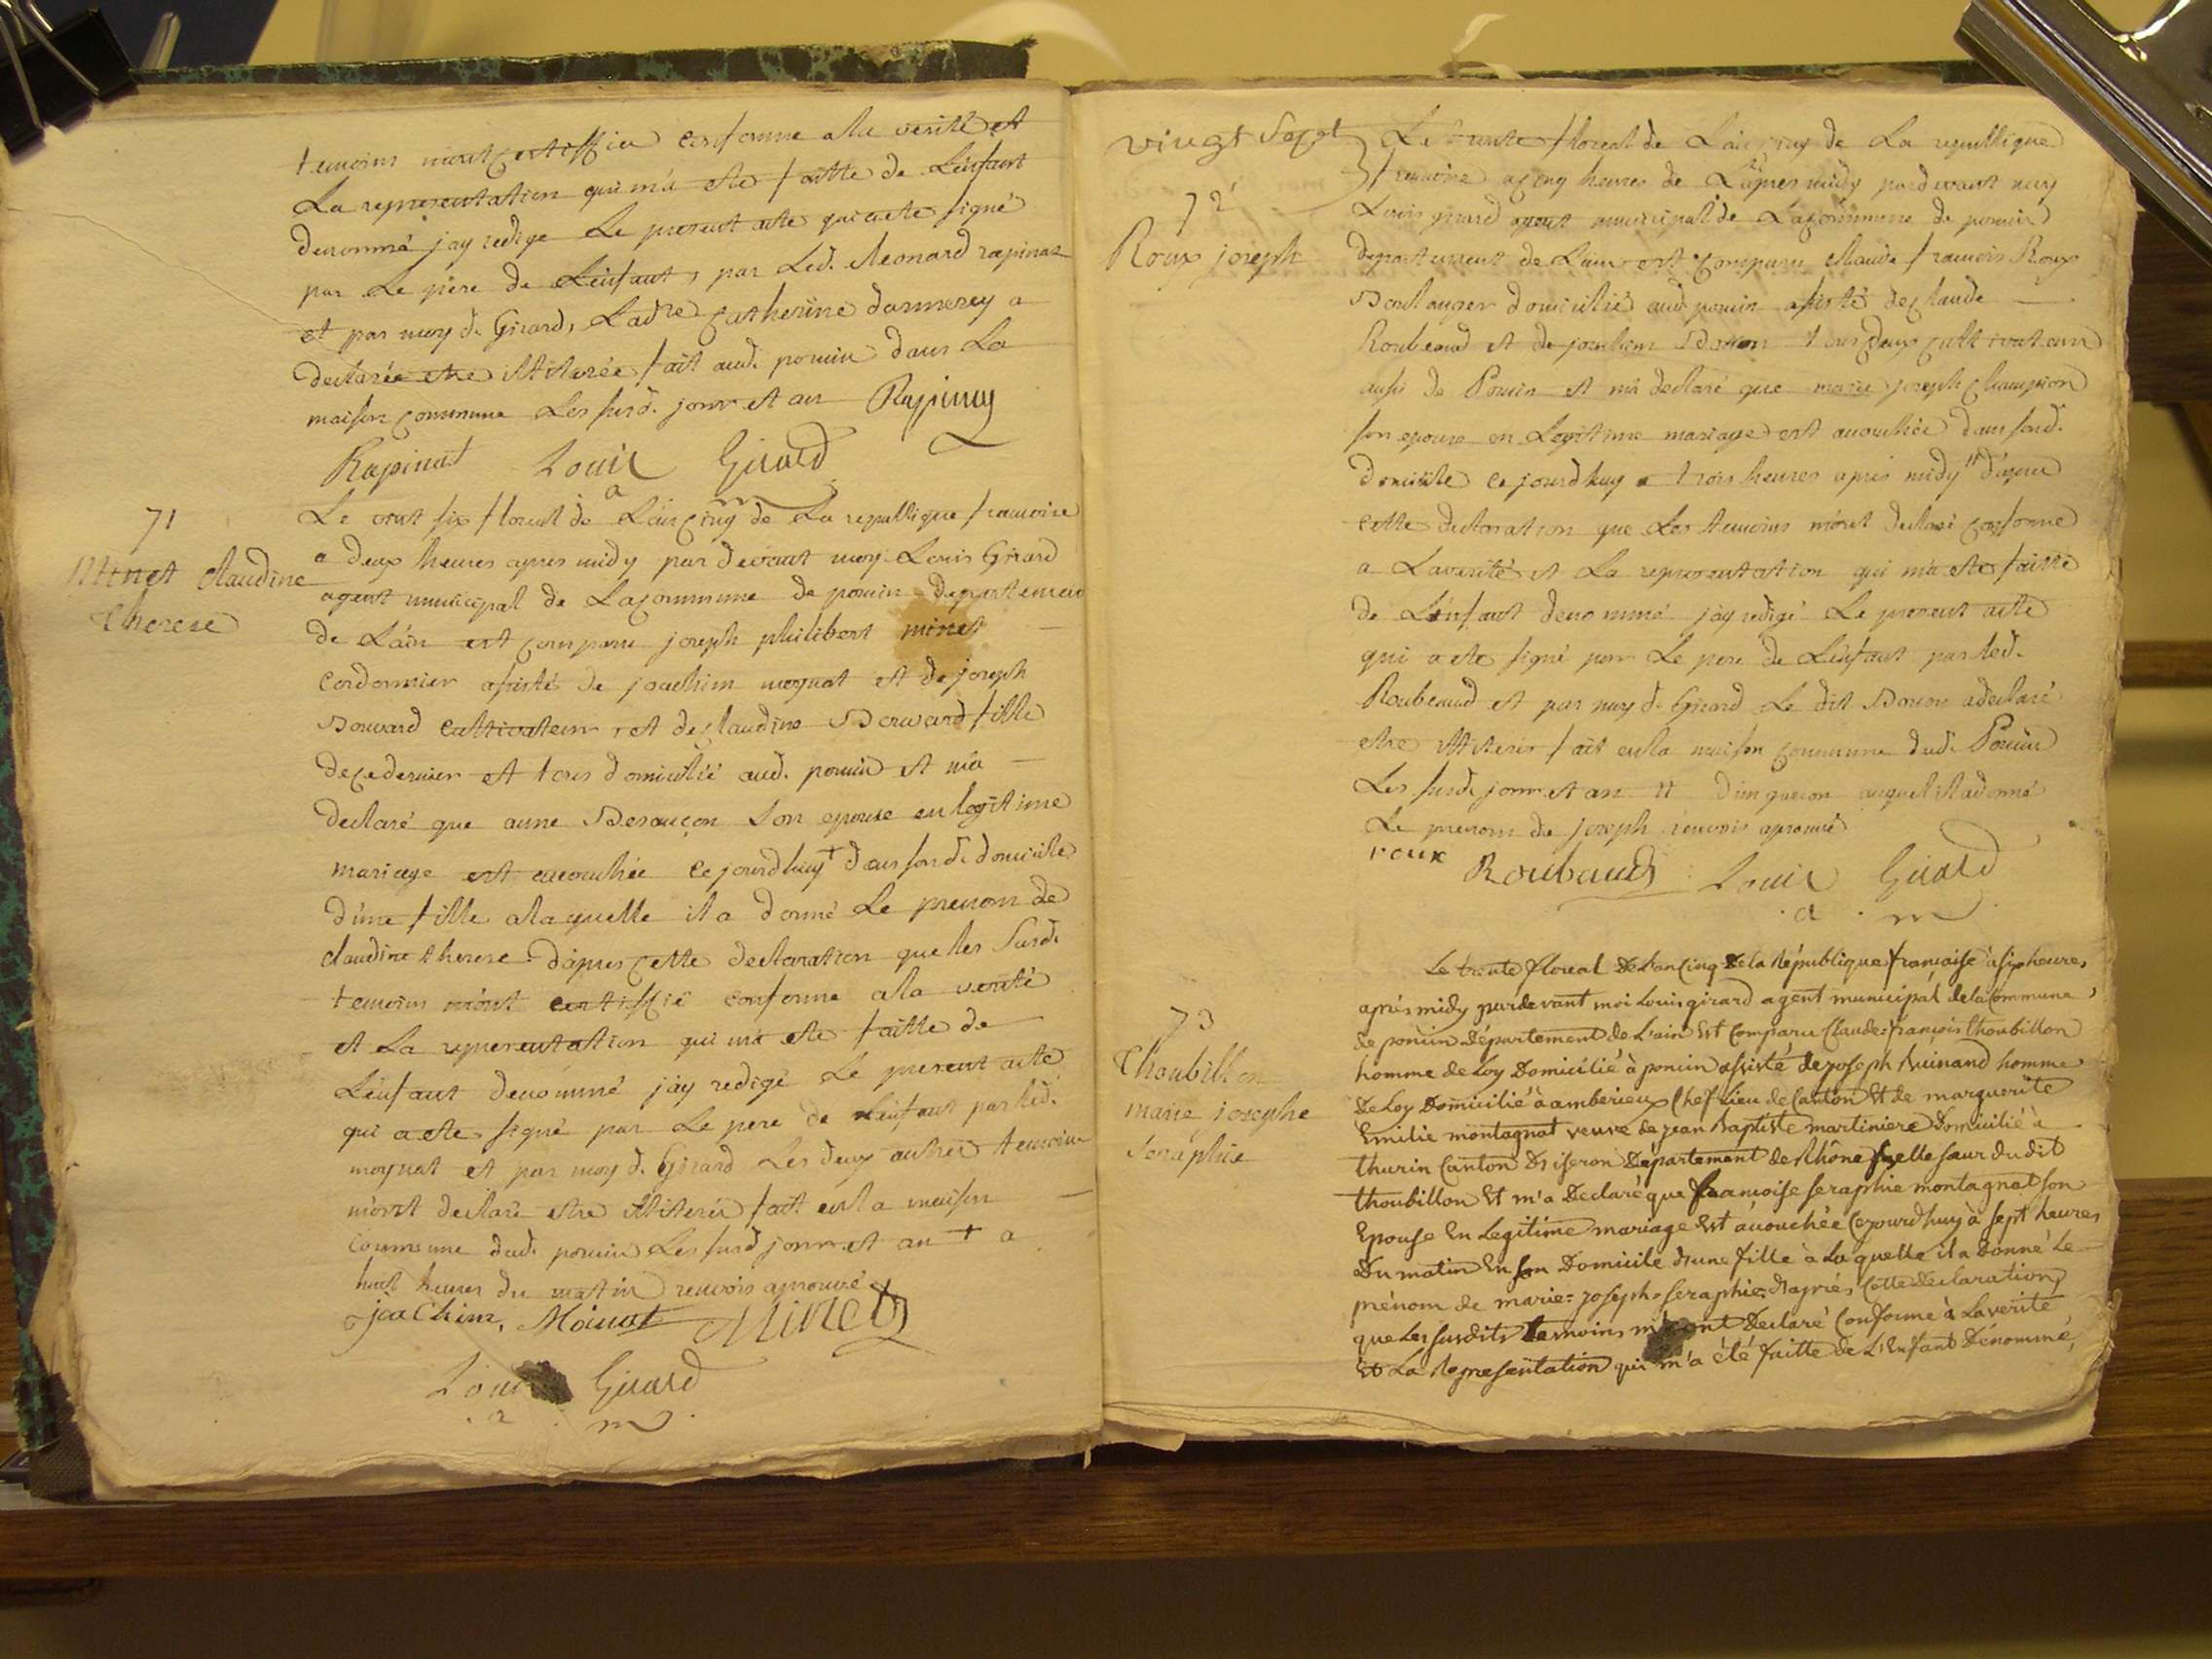 temoins mont certiffiée conforme ala verité et
La representation qui m'a ete faitte de L'enfant
denommé j'ay redigé Le present acte qui a ete signé
par Le pere de L'enfant, par Led. Leonard rapinat
et par moy d. Girard, Ladte Catherine darmerey a
declarée etre illiterée fait aud. poncin dans La
maison commune Les susd. jour et an Rapinay
Rapinat Louis Girard
a m
71
Minet Claudine
therese
Le vint six floreal de L'an cinq de La republique francoise
a deux heures apres midy par devant moy Louis Girard
agent municipal de La commune de poncin departement
de L'ain est comparu joseph philibert minet
Cordonnier assisté de joachim moynat et de joseph
Bouvard cultivateur et de claudine Bouvard fille
de ce dernier et tous domicilié aud. poncin et m'a
declaré que anne Besançon son epouse en legitime
mariage est accouchée ce jourdhuy + dans son d. domicile
d'une fille a laquelle il a donné Le prenom de
claudine therese d'apres cette declaration que les susd.
temoins m'ont certiffié conforme a la verité
et La representation qui m'a ete faitte de
L'enfant denommé j'ay redigé Le present acte
qui a ete signé par Le pere de L'enfant par led.
moynat et par moy d. Girard Les deux autres temoins
m'ont declaré etre illiteré fait en la maison
commune dud. poncin Les susd jour et an + a
huit heures du matin renvois aprouvé
joachim Moinat Minet
Louis Girard
a m
vingt sept
72
Roux joseph
Le trente floreal de L'an cinq de La republique
francoise a cinq heures de L'apres midy pardevant moy
Louis girard agent municipal de La commune de poncin
departement de L'ain est comparu Claude francois Roux
Boulanger domicilié aud poncin assisté de claude
Roubeaud et de joachim Bouon tous deux cultivateurs
aussi de Poncin et m'a declaré que marie joseph champion
son epouse en Legitime mariage est accouchée dans sond.
domicile ce jourdhuy a trois heures apres midy # d'apres
cette declaration que Les temoins m'ont declaré conforme
a La verité et La representation qui m'a ete faitte
de L'enfant denommé j'ay redigé Le present acte
qui a ete signé par Le pere de L'enfant par led.
Roubeaud et par moy d. Girard Le dit Bouon a declaré
etre illiteré fait en la maison commune dud. Poncin
Les susd. jour et an # d'un garcon auquel il a donné
Le prenom de joseph renvois aprouvé
roux Roubaud Louis Girard
a m
73
Thoubillon
marie josephe
Seraphie
Le trente floreal De L'an Cinq De la République française à six heures
après midy pardevant moi Louis girard agent municipal de la Commune
de poncin Département de L'ain Est Comparu Claude=françois thoubillon
homme de Loy Domicilié à poncin assisté de joseph Ruinand homme
De Loy Domicilié à amberieux Chef Lieu de Canton Et de marguerite
Emilie montagnat veuve de jean Baptiste martiniere Domicilié à
thurin Canton D'iseron Département de Rhône belle sœur du dit
thoubillon Et m'a Declaré que francoise seraphie montagnat son
Epouse En Legitime mariage Est acouchée Cejourd'huy à sept heures
Du matin En son Domicile D'une fille à Laquelle il a Donné Le
prénom de marie=joseph=seraphie; D'après Cette Declaration
que Les susdits temoins m'ont Declaré Conforme à La verité
Et La Representation qui m'a été faitte de L'Enfant Dénommé,